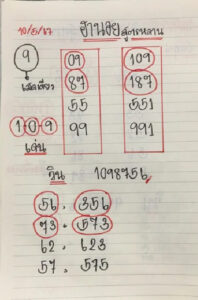 10/5/67 ฮานอย สูตรหลาน
9 09 109
เลขเดียว 87 187
55 551
1-0-9 99 991
เด่น
วิน 1098756
56. 356
73. 573
62. 623
57. 575